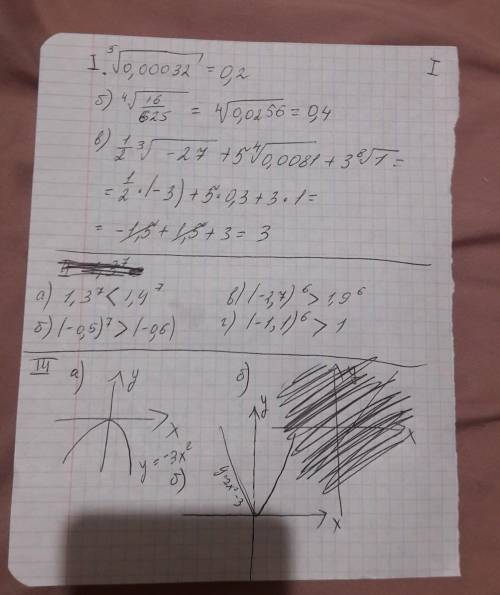 I. ⁵√0,00032 = 0,2
I
б) ⁴√16/625 = ⁴√0,0256 = 0,4
в) 1/2 ³√-27 + 5 ⁴√0,0081 + 3 ⁸√1 =
= 1/2 · (-3) + 5 · 0,3 + 3 · 1 =
= -1,5 + 1,5 + 3 = 3
а) 1,3⁷ < 1,4⁷
в) (-1,7)⁶ > 1,9⁶
б) (-0,5)⁷ > (-0,6)
г) (-1,1)⁶ > 1
III а)
б)
y
x
y = -3x²
б)
y
y=2x²-3
x